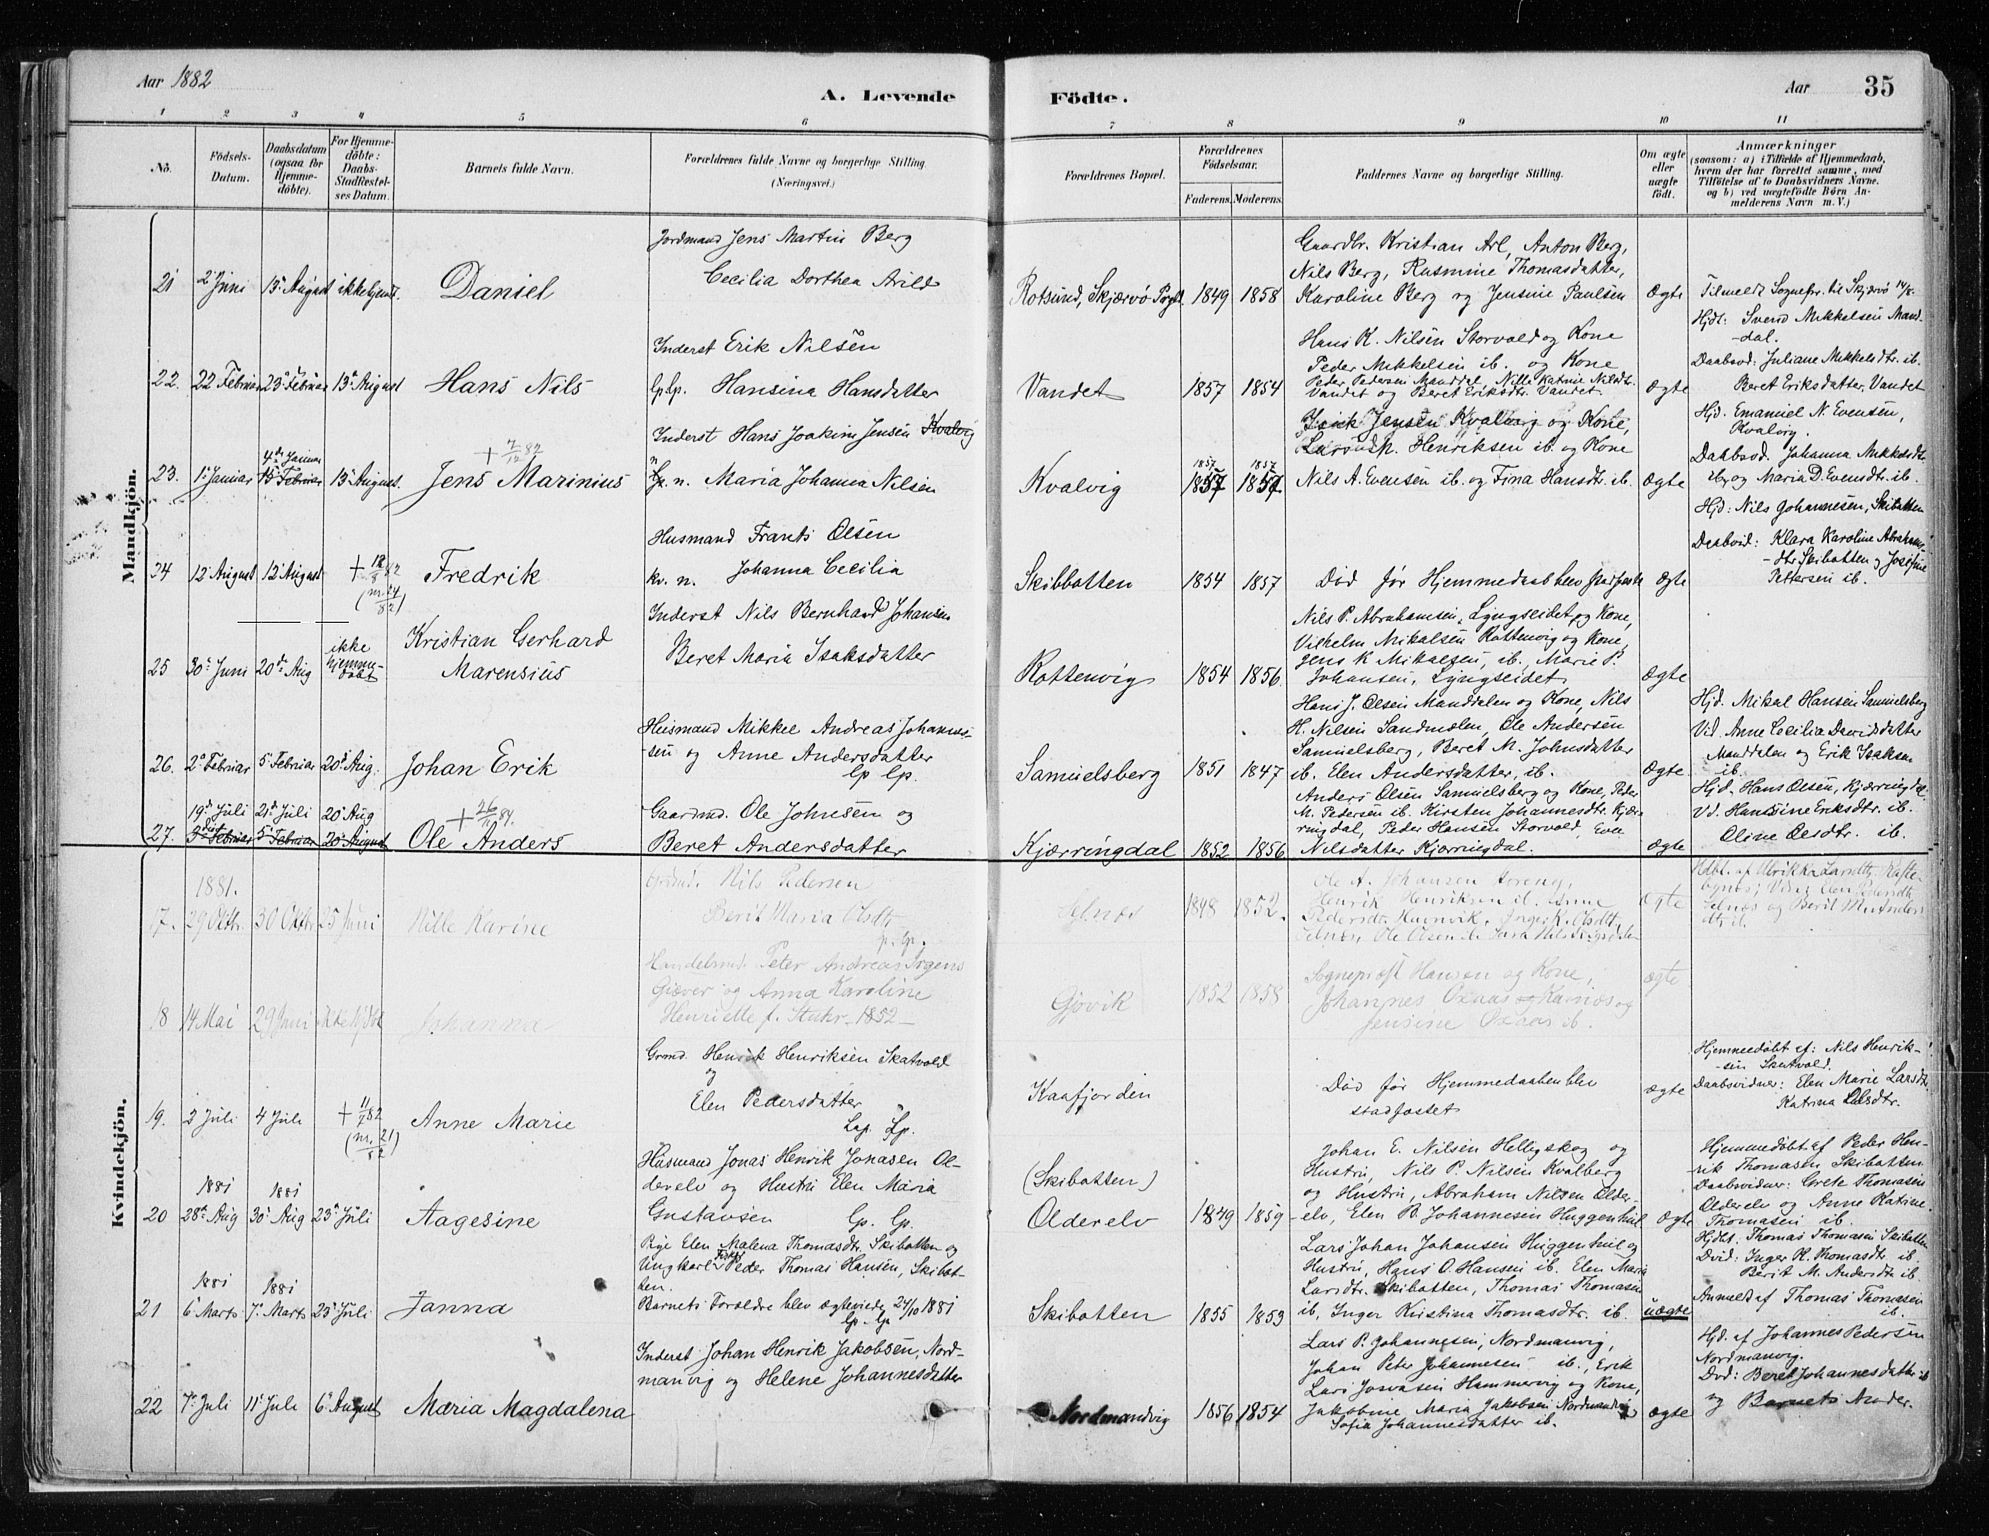 Aar 1882
A. Levende Födte.
Aar 35
1 2 3 4 5 6 7 8 9 10 11
No.
Födsels-Datum.
Daabsdatum (ogsaa for Hjemme-döbte).
For Hjemme-döbte: Daabs-Stadfestel-ses Datum.
Barnets fulde Navn.
Forældrenes fulde Navne og borgerlige Stilling. (Næringsvei.)
Forældrenes Bopæl.
Forældrenes Födselsaar.
Faderens. Moderens.
Faddernes Navne og borgerlige Stilling.
Om ægte eller uægte födt.
Anmærkninger
(saasom: a) i Tilfælde af Hjemmedaab, hvem der har forrettet samme, med Tilföielse af to Daabsvidners Navne, og b) ved uægtefödte Børn An-melderens Navn m. V.)
Mandkjön.
Jordmand Jens Martin Berg
Cecilia Dorthea Arild
21 2 Juni 15 August ikke hjmd. Daniel
Rotsund, Skjærvö Pgld 1849 1858
Gaardbr. Kristian Arl, Anton Berg,
Nils Berg, Rasmine Thomasdatter,
Karoline Berg og Jensine Paulsen
Ægte
Tilmeldt Sognepr. til Skjærvö 14/8.
Inderst Erik Nilsen
22. 22 Februar 23 Februar 13 August Hans Nils
lp lp. Hansina Hansdatter
Vandet 1857 1854
Hans K. Nilsen Storvold og Kone
Peder Mikkelsen ib. og Kone
Peder Pedersen Manddal, Nille Katrine Nilsdtr.
Vandet og Beret Eriksdtr. Vandet.
Ægte
Hjdt: Svend Mikkelsen Mand-
dal.
Daabsvd: Juliane Mikkelsdtr. ib.
Beret Eriksdatter, Vandet
Inderst Hans Joakim Jensen Kvalvig
23. 1 Januar 4de Januar 15 Februar 13 August.
+ 7/12 82
Jens Marinius
n. Maria Johanna Nilsen
Kvalvig 1857 1857
Jensen Kvalvig og Kone,
Henriksen ib. og Kone
Nils A. Evensen ib. og Fina Hansdtr. ib.
Ægte
Hjd. Emanuel N. Evensen,
Kvalvig.
Daabsvd. Johanna Mikkelsdtr.
ib, og Maria D. Evensdtr. ib.
Husmand Frants Olsen
kv. n. Johanna Cecilia
24 12 August 12 August + 82 (nr. 24/82) Fredrik
Skibbotten 1854 1857
Död för Hjemmedaaben blev stadfæstet
Ægte
Hjd: Nils Johannesen, Skibotten
Daabvid: Klara Karoline Abraham-
dtr Skibotten og Josefine
Pettersen ib.
Inderst Nils Bernhard Johansen
Beret Maria Isaksdatter
25 30 Juni 20de Aug ikke hjemme-döbt
Kristian Gerhard
Marensius
Rottenvig 1854 1856.
Nils P. Abrahamsen, Lyngseidet og Kone,
Vilhelm Mikalsen Rottenvig og Kone,
Jens K Mikalsen, ib., Marie P.
Johansen, Lyngseidet
Ægte
Husmand Mikkel Andreas Johannes-
-sen og Anne Andersdatter
lp lp.
26. 2 Februar 5 Februar 20 Aug. Johan Erik
Samuelsberg 1851 1847
Hans J. Olsen Manddalen og Kone, Nils
H. Nilsen Sandmælen, Ole Andersen
Samuelsberg, Beret M. Johnsdatter
ib. Elen Andersdatter, ib.
Ægte
Hjd. Mikal Hansen Samuelsberg
Vid. Anne Cecilia Davidsdatter
Manddalen og Erik Isaksen
ib.
19 Juli 21 Juli 20 Aug
27. 3 Februar 5 Februar 20 August
+ 26/11 84.
Ole Anders
Gaardmd. Ole Johnsen og
Beret Andersdatter
Kjærringdal 1852 1856
Anders Olsen Samuelsberg og Kone, Peder
M. Pedersen ib. Kirsten Johannesdtr. Kjær-
ringdal, Peder Hansen Storvold, Eva
Nilsdatter Kjærringdal.
ægte
Hjd. Hans Olsen, Kjærringdal
Vd. Hansine Eriksdtr. ib.
Oline Olsdtr. ib.
Kvindekjön.
1881.
17. 29 Oktbr. 30 Oktbr 25 Juni Nille Karine
Grdmd. Nils Pedersen
Berit Maria Olsdtr
lp. lp.
Selnæs 1848 1852.
Ole A. Johansen
Henrik Henriksen ib. Anne
ægte
18 14 Mai 29 Juni ikke Hjdöbt Johanna
Handelsmd. Peter Andreas Irgens
Giæver og Anna Karoline
Henriette f. Stuhr - 1852 -
Gjövik 1852 1858
Sogneprest Hansen og Kone,
Johannes Oxaas Karnæs og
Jensine Oxaas ib.
ægte
Grmd. Henrik Henriksen Skatvold
og
Elen Pedersdatter
Lap. Lp.
19. 2 Juli 4 Juli + 11/7 82 (nr. 21/82) Anne Marie
Kaafjorden
Död för Hjemmedaaben blev
stadfæstet
ægte
Hjemmedöbt af: Nils Henrik-
sen Skatvold.
Daabsvidner: Elen Marie Larsdtr.
Katrina Olsdtr.
Husmand Jonas Henrik Jonasen Ol-
derelv og Hustru Elen Maria
Gustavsen lp. lp.
1881 1881
20 28 Aug 30 Aug 23 Juli Aagesine
(Skibotten)
Olderelv 1849 1859
Johan E. Nilsen Helligskog og
Hustru, Nils P. Nilsen Kvalberg
og Hustru, Abraham Nilsen Older-
elv, Elen B. Johannesen Huggenhul
ægte
Hjemmedöbt af Peder Hen-
rik Thomasen Skibotten
Daabsvidner: Grete Thomasen
Olderelv og Anne Katrine
Thomasen ib.
Pige Elen Malena Thomasdtr. Skibotten og
Ungkarl Peder Thomas Hansen, Skibot-
ten.
Barnets Forældre blev ægteviede 24/10 1881
lp. lp
1881 1881
21 6 Marts 7 Marts 23 Juli Janna
Skibotten 1855 1853
Lars Johan Johansen Huggenhul og
Hustru, Hans O. Hansen ib. Elen Maria
Larsdtr. Skibotten, Thomas Thomasen
ib, Inger Kristina Thomasdtr. ib.
uægte
Hjdbt. Thomas Thomasen Skibotten
Dvid: Inger K. Thomasdtr. ib
Berit M. Andersdtr ib.
Anmeldt af Thomas Thomasen
ib.
Inderst Johan Henrik Jakobsen, Nord-
manvig og Helene Johannesdatter
22 7 Juli 11 Juli 6 August Maria Magdalena
Nordmandvig 1856 1854
Lars P. Johannesen, Nordmanvig,
Johan Peter Johannesen ib., Erik
Lars Jonasen Hammervig og Kone,
Jakobine Maria Jakobsen, Nordmandvig
Sofia Johannesdatter ib.
ægte
Hjd. af Johannes Pedersen
Nordmanvig.
Dvd: Beret Johannesdatter ib
og Barnets Moder.